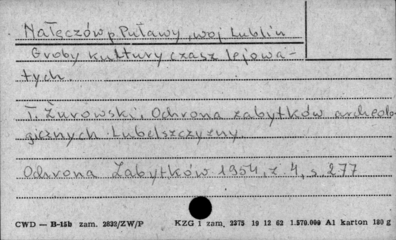 Nałęczów p. Puławy, woj Lublin
Groby kultury czasz lejowa-
tych.
T. Żurowski, Ochrona zabytków archeolo
gicznych Lubelszczyzny.
Ochrona Zabytków 1954, z 4, s 277
CWD — B-15b zam. 2823/ZW/P KZG 1 zam. 2275 19 12 62 1.570.000 A1 karton 180 g